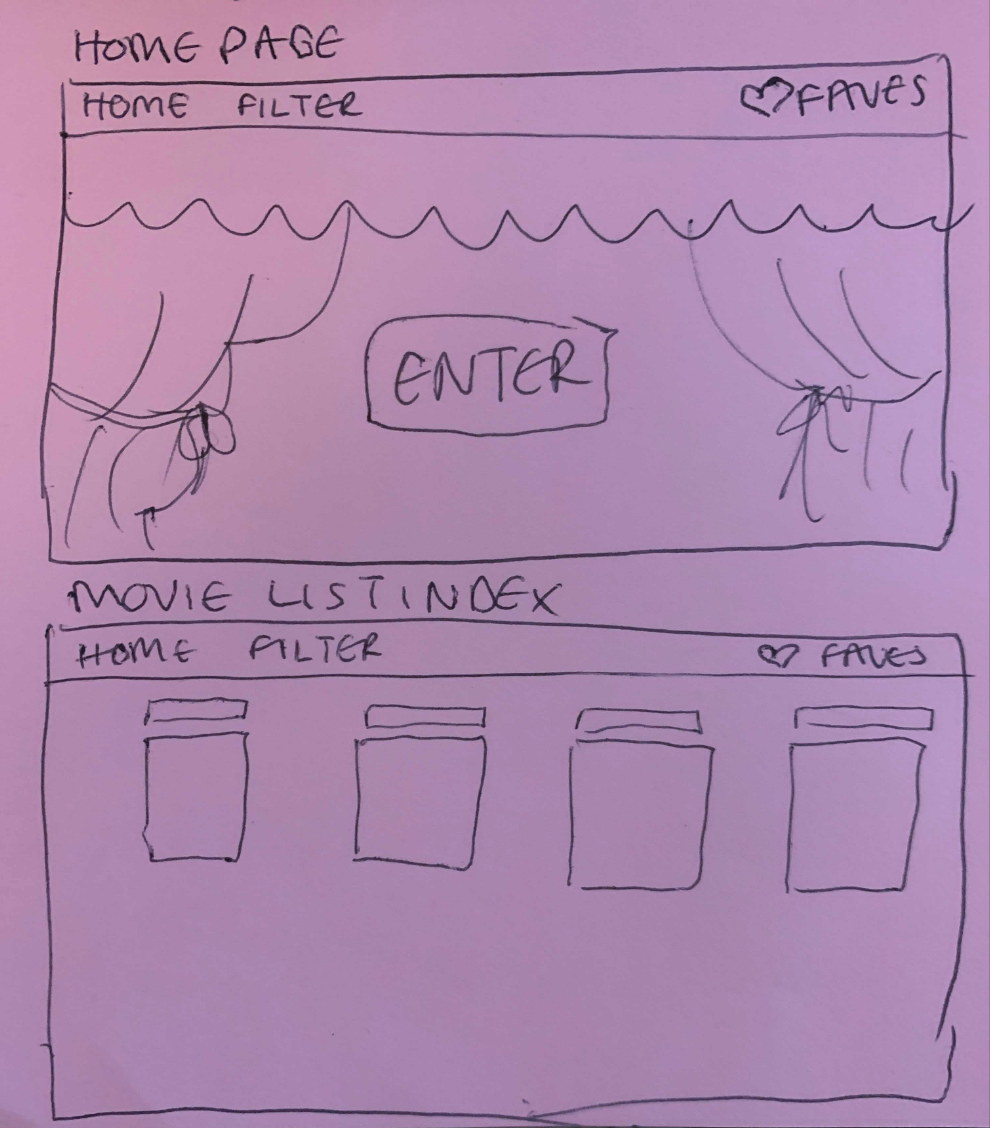 HOME PAGE
HOME FILTER ♡ FAVES
ENTER
MOVIE LIST INDEX
HOME FILTER ♡ FAVES